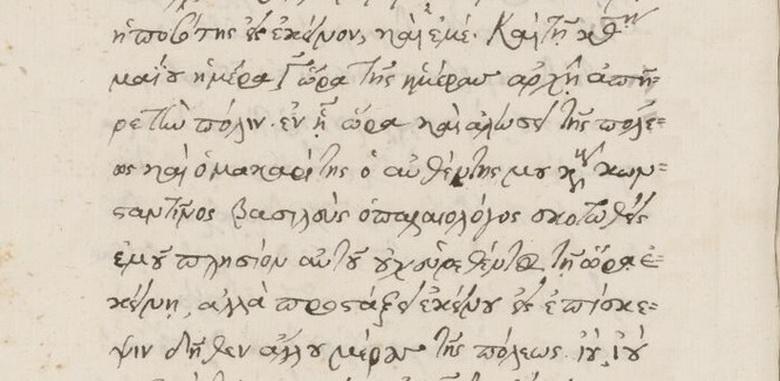 εἰς ἐκεῖνον, καὶ ἐμέ. Καὶ τῇ κθῃ
μαΐου ἡμέρα Γ ὥρα τῆς ἡμέρας ἀρχῇ ἀπῆ=
ρε τὴν πόλιν· ἐν ᾗ ὥρα καὶ ἁλώσει τῆς πόλε=
ως καὶ ὁ μακαρίτης ὁ αὐθέντης μου κὺρ κων=
σταντῖνος βασιλεὺς ὁ παλαιολόγος σκοτωθεὶς
ἐμοῦ πλησίον αὐτοῦ οὐχ εὑρεθέντος τῇ ὥρα ἐ=
κείνῃ, ἀλλὰ προστάξει ἐκείνου εἰς ἐπίσκε=
ψιν δῆθεν ἄλλου μέρους τῆς πόλεως. ἰοὺ, ἰοὺ